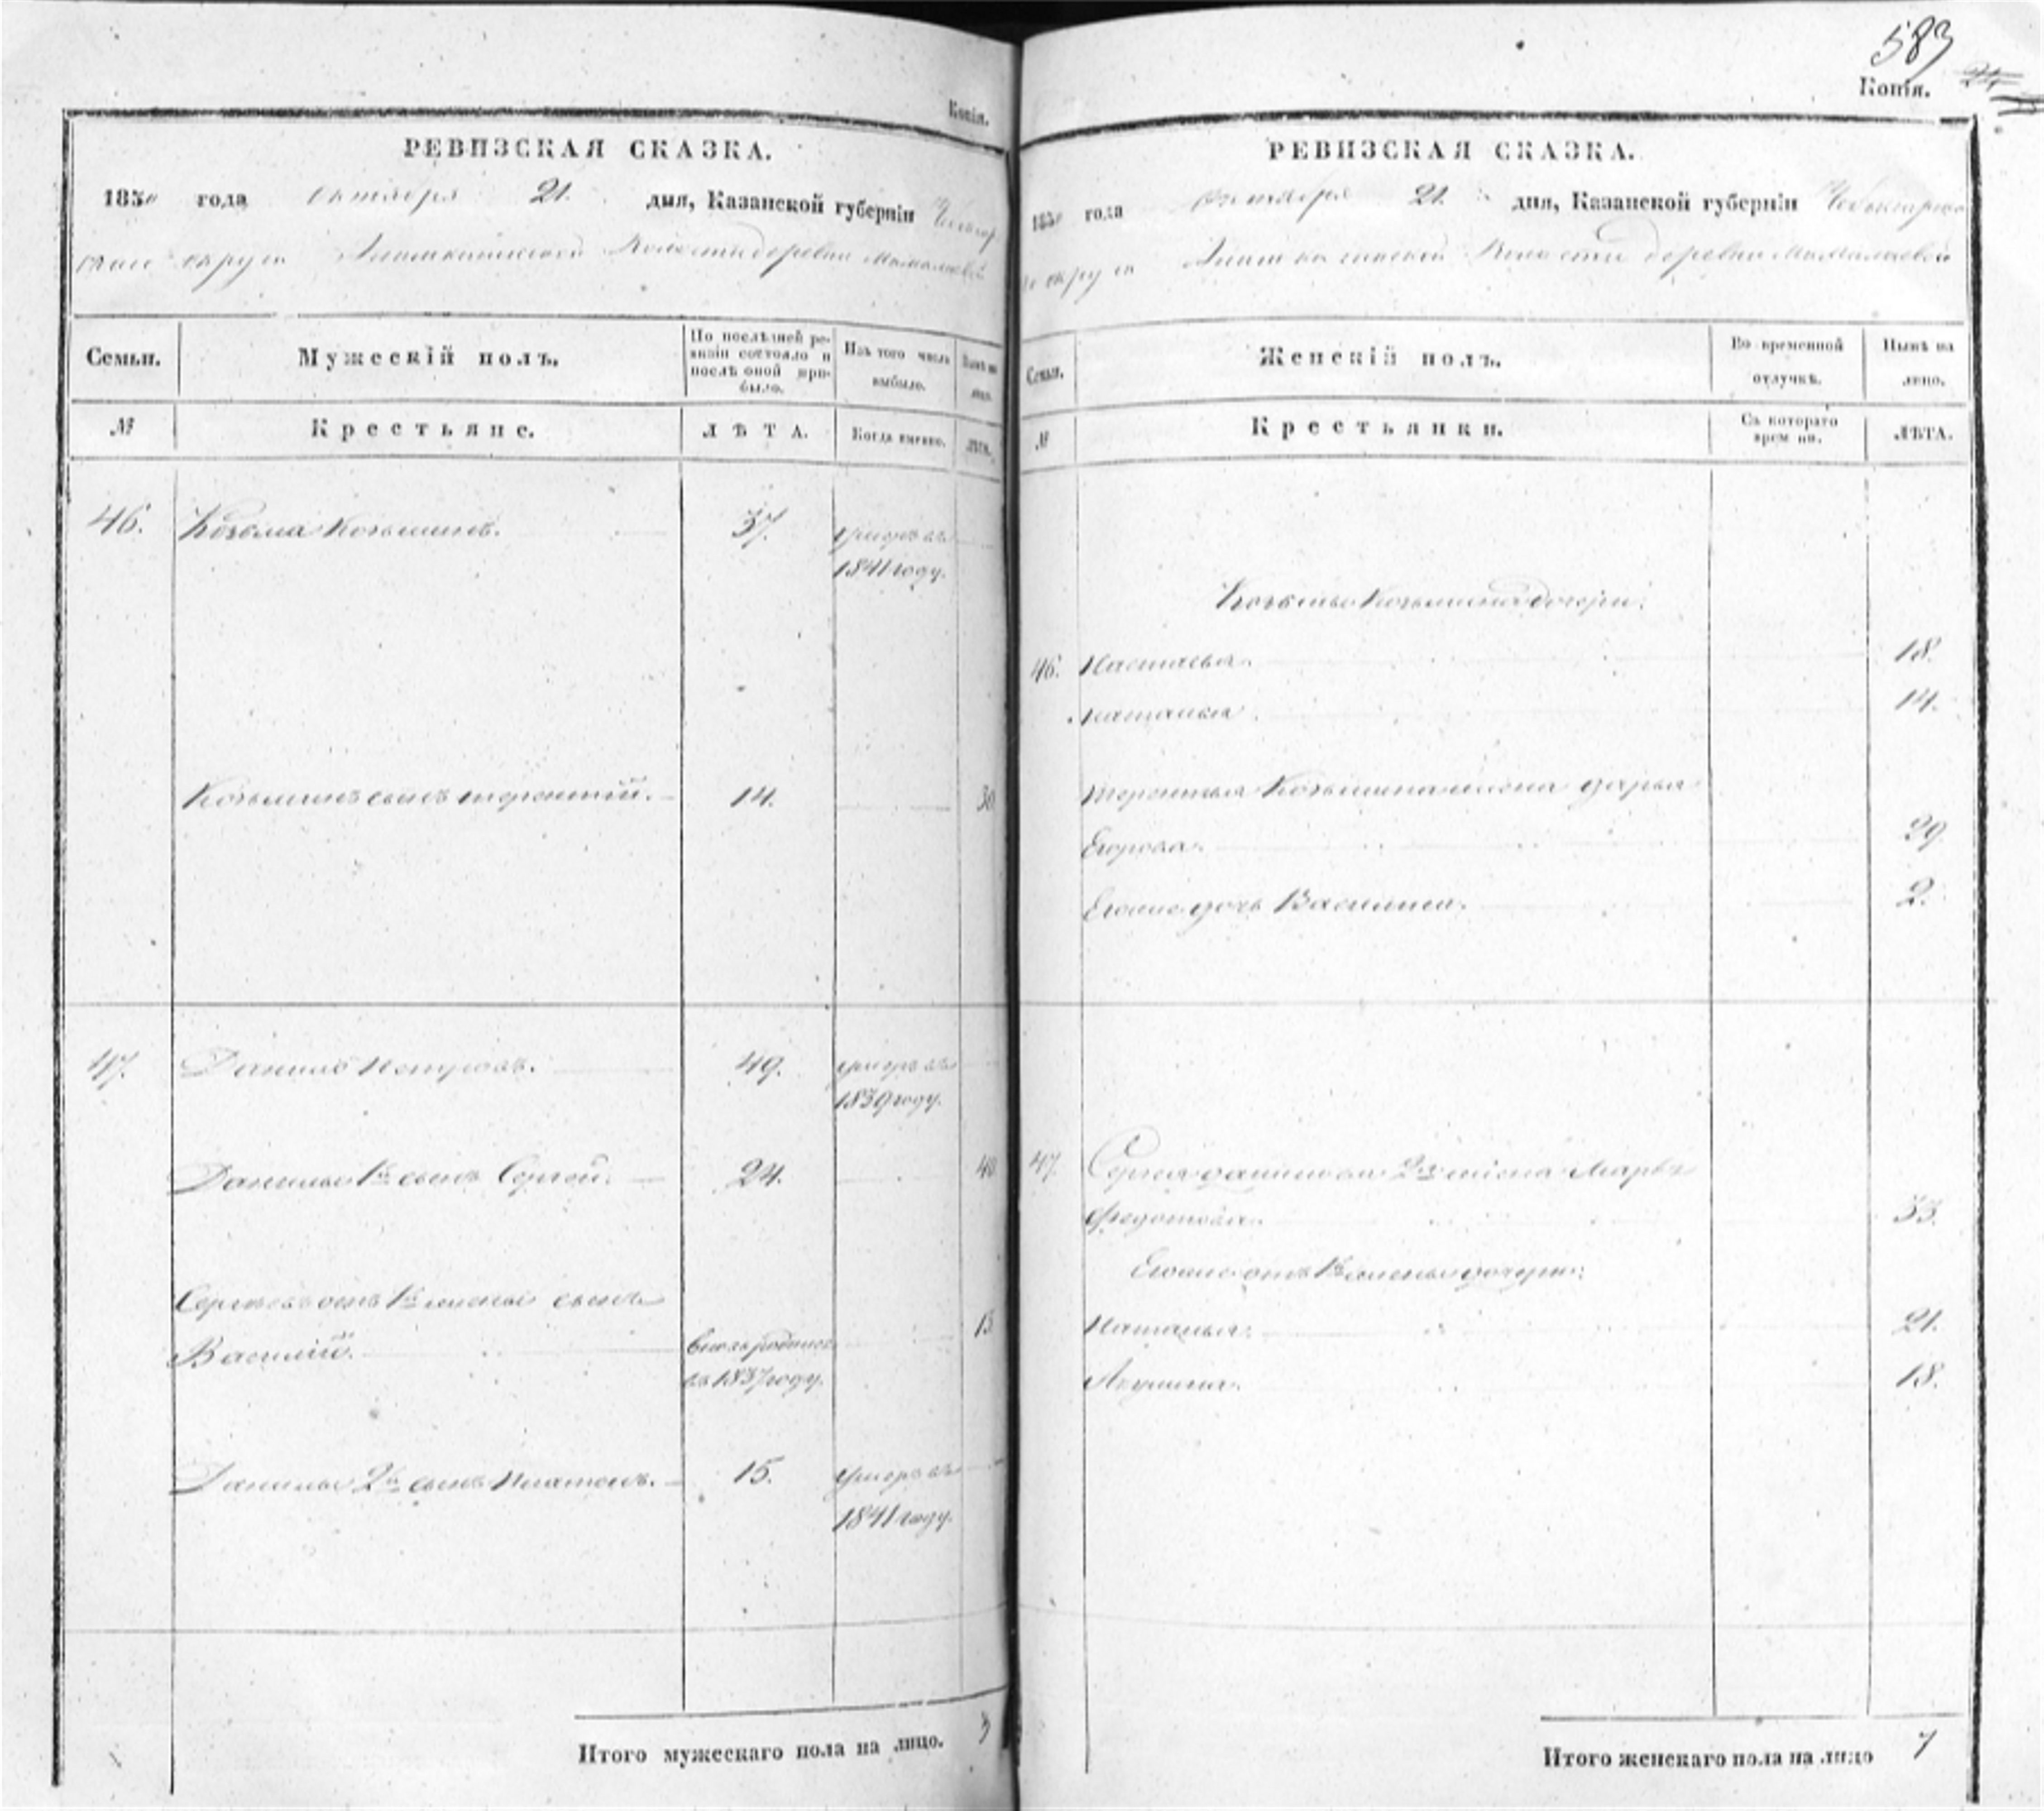 583
Копія.
Копія.
РЕВИЗСКАЯ СКАЗКА.
1850 года октября 21. дня, Казанской губерніи
округа волости деревни
Семьи.
Мужескій полъ.
По послѣдней ре-
визіи состояло и
послѣ оной при-
было.
Изъ того числа
выбыло.
Нынѣ на
лицо.
№
Крестьяне.
ЛѢТА.
Когда именно.
ЛѢТА.
46. Козьма Козьминъ. 37. умеръ въ
1841 году.
Козьминъ сынъ терентій. 14. 30
47. Данило Петровъ. 49. умеръ въ
1839 году.
Данилы 1й сынъ Сергей. 24. 40
Сергѣевъ отъ 1й жены сынъ
Василій. 13
въ 1837 году.
Данилы 2й сынъ Платонъ. 15. умеръ въ
1841 году.
Итого мужескаго пола на лицо. 3
РЕВИЗСКАЯ СКАЗКА.
1850 года октября 21. дня, Казанской губерніи Чебоксарска
го округа волости деревни
Семьи.
Женскій полъ.
Во временной
отлучкѣ.
Нынѣ на
лицо.
№
Крестьянки.
Съ котораго
времени.
ЛѢТА.
Козьмы Козьмина дочери:
46. Настасья. 18.
Наталья. 14.
терентья Козьмина жена дарья
Егорова. 29
Егоже дочь Василиса. 2.
47. Сергея данилова 2я жена Марѳа
Федотова. 33.
Егоже отъ 1й жены дочери:
Наталья. 21.
Акулина. 18.
Итого женскаго пола на лицо 7